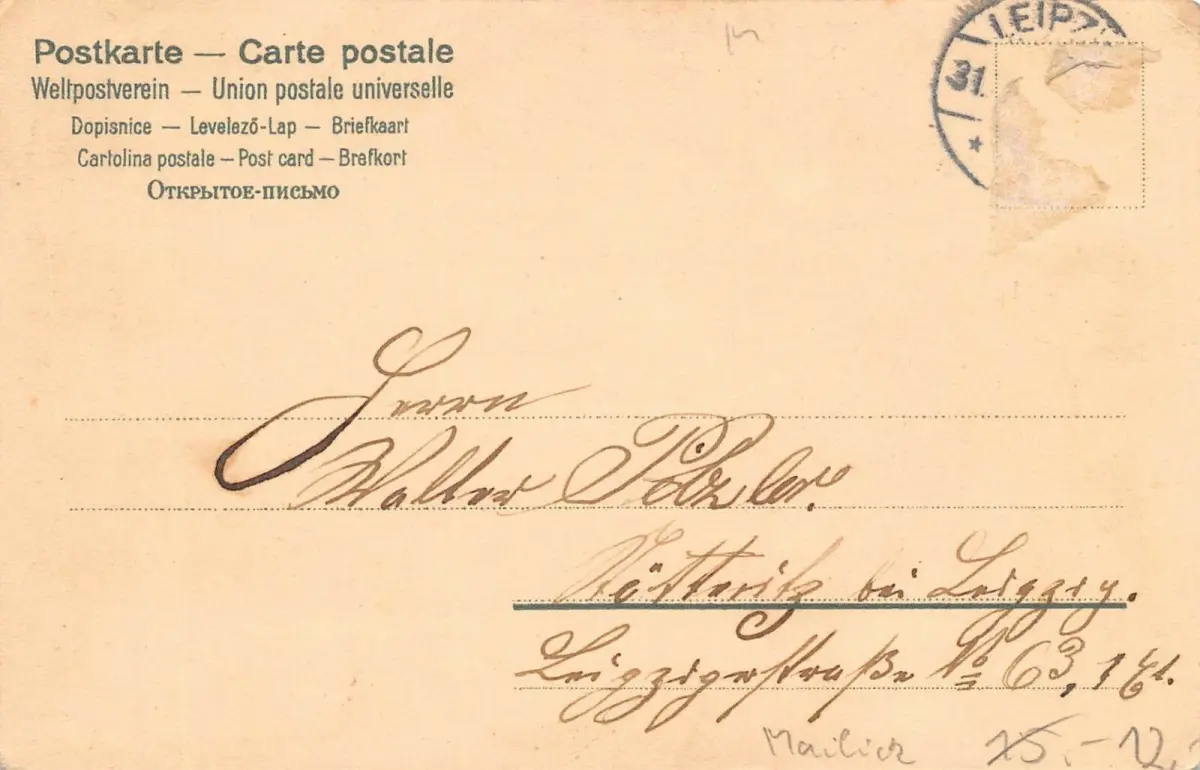 Postkarte — Carte postale
Weltpostverein — Union postale universelle
Dopisnice — Levelező-Lap — Briefkaart
Cartolina postale — Post card — Brefkort
Открытое-письмо
LEIPZ
31.
Herrn
Walter
Stötteritz bei Leipzig.
Leipzigerstraße № 63, 1
Mailick
15.- 12.